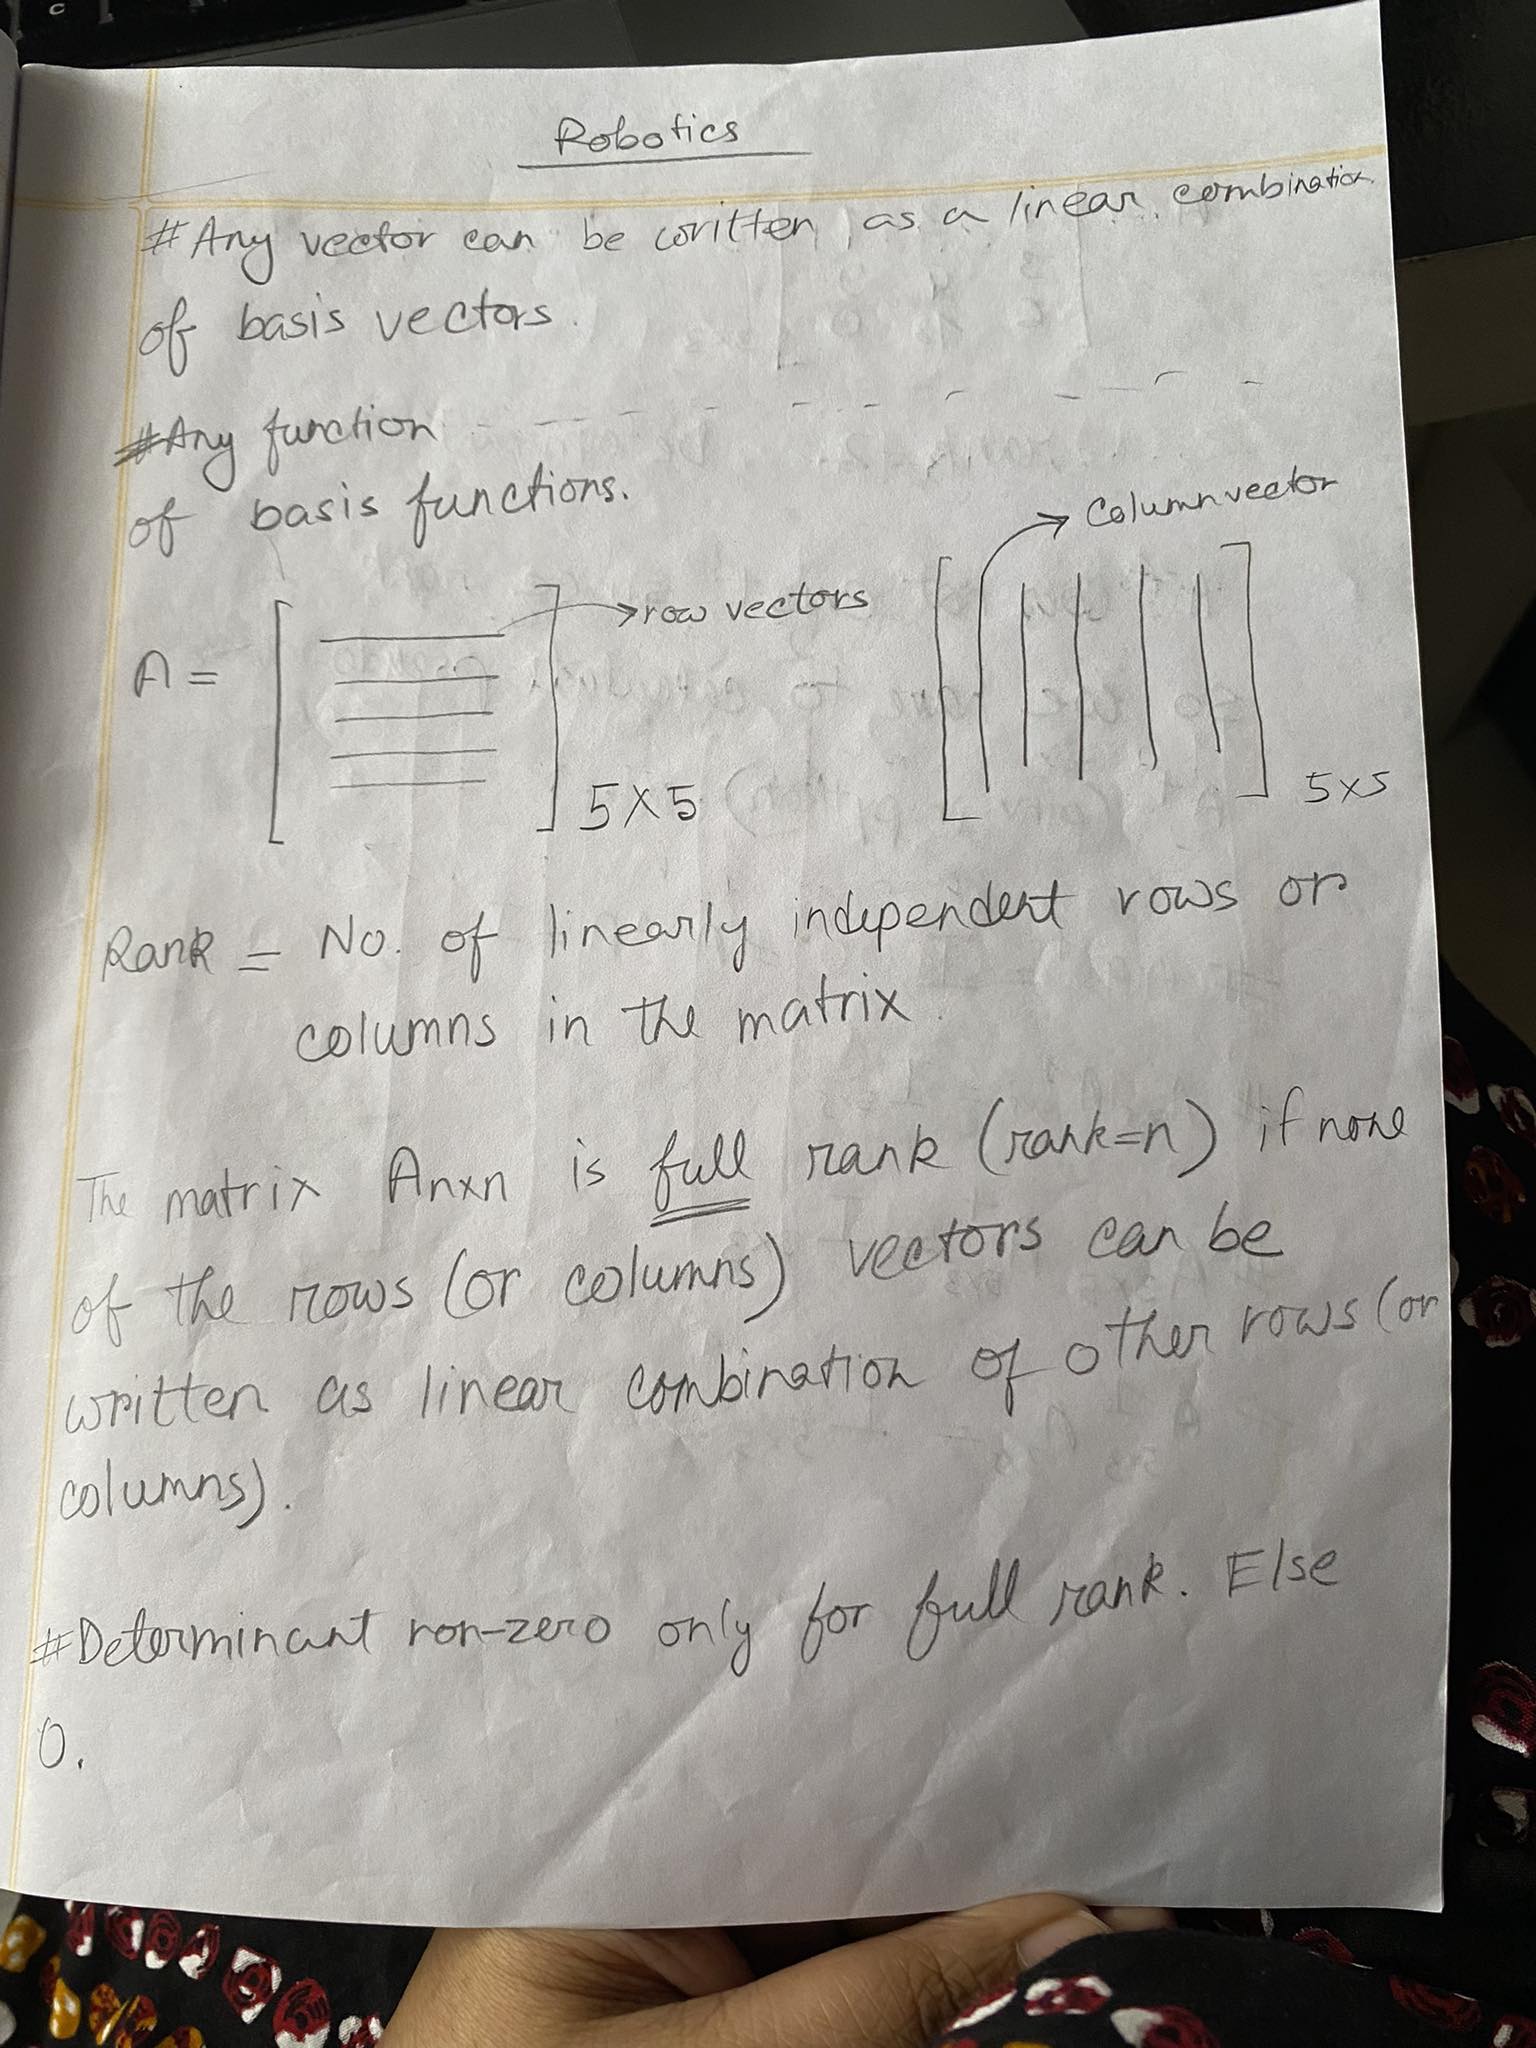 Robotics
# Any vector can be written as a linear combination
of basis vectors.
# Any function - - - - - - - - - -
of basis functions.
Column vector
A = [ ] 5x5 → row vectors [ ] 5x5
Rank = No. of linearly independent rows or
columns in the matrix.
The matrix Anxn is full rank (rank=n) if none
of the rows (or columns) vectors can be
written as linear combination of other rows (or
columns).
# Determinant non-zero only for full rank. Else
0.